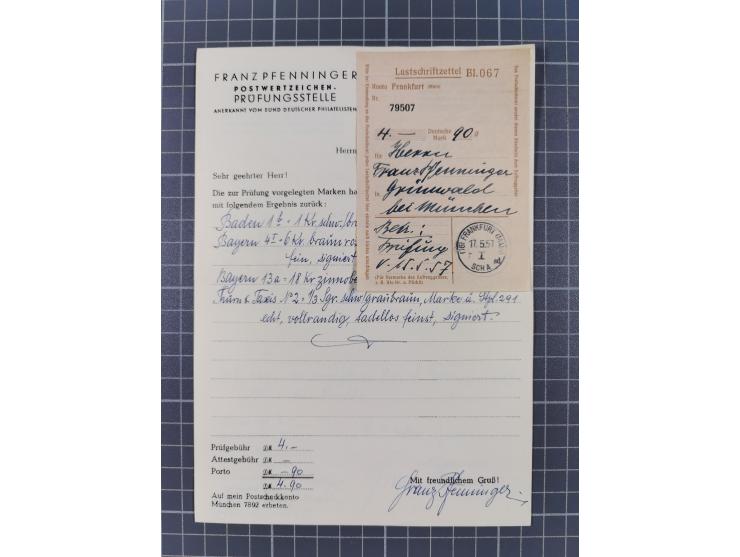 FRANZ PFENNINGER
POSTWERTZEICHEN-
PRÜFUNGSSTELLE
ANERKANNT VOM BUND DEUTSCHER PHILATELISTEN
Herrn
Sehr geehrter Herr!
Die zur Prüfung vorgelegten Marken ha
mit folgendem Ergebnis zurück :
Baden 1b - 1 Kr. schw./bra
Bayern 4I - 6 Kr. braunro
fein, signiert
Bayern 13a - 18 Kr zinnobe
Thurn & Taxis No 2 - 1/3 Sgr. schw/graubraun, Marke u. Stpl. 291
echt, vollrandig, tadellos feinst, signiert.
Prüfgebühr DM 4.-
Attestgebühr DM -
Porto DM -.90
DM 4.90
Auf mein Postscheckkonto
München 7892 erbeten.
Mit freundlichem Gruß!
Franz Pfenninger
Lastschriftzettel Bl. 067
Konto Frankfurt (Main)
Nr. 79507
4.— Deutsche Mark 90
für Herrn
Franz Pfenninger
in Grünwald
bei München
Betr.:
Prüfung
v. 15.5.57
(Für Vermerke des Auftraggebers,
FRANKFURT (MAIN)
17.5.57
SCHA